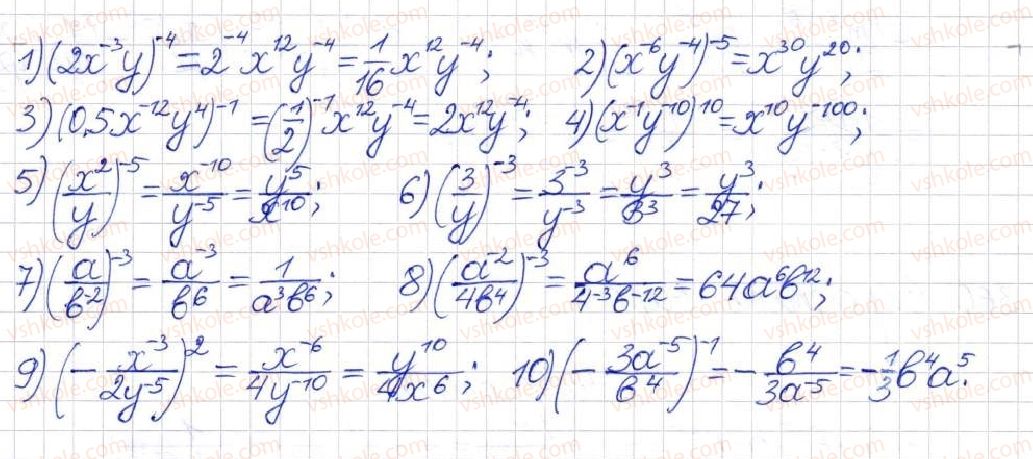 1) (2x⁻³y)⁻⁴ = 2⁻⁴x¹²y⁻⁴ = 1/16 x¹²y⁻⁴; 2) (x⁻⁶y⁻⁴)⁻⁵ = x³⁰y²⁰;
3) (0,5x⁻¹²y⁴)⁻¹ = (1/2)⁻¹x¹²y⁻⁴ = 2x¹²y⁻⁴; 4) (x⁻¹y⁻¹⁰)¹⁰ = x¹⁰y⁻¹⁰⁰;
5) (x²/y)⁻⁵ = x⁻¹⁰/y⁻⁵ = y⁵/x¹⁰; 6) (3/y)⁻³ = 3⁻³/y⁻³ = y³/3³ = y³/27;
7) (a/b⁻²)⁻³ = a⁻³/b⁶ = 1/a³b⁶; 8) (a⁻²/4b⁴)⁻³ = a⁶/4⁻³b⁻¹² = 64a⁶b¹²;
9) (-x⁻³/2y⁻⁵)² = x⁻⁶/4y⁻¹⁰ = y¹⁰/4x⁶; 10) (-3a⁻⁵/b⁴)⁻¹ = -b⁴/3a⁻⁵ = -1/3 b⁴a⁵.